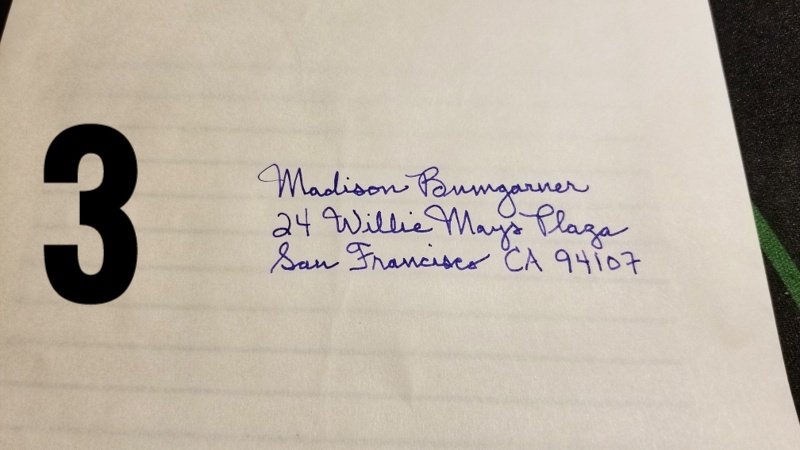 3
Madison Bumgarner
24 Willie Mays Plaza
San Francisco CA 94107